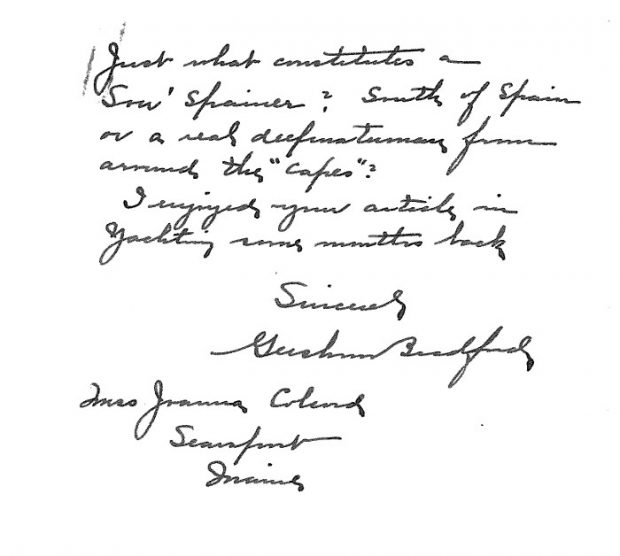 Just what constitutes a
Sou' Spainer? South of Spain
or a real deepwaterman from
around the "Capes"?
I enjoyed your article in
Yachting some months back
Sincerely
Gershom Bradford
Miss Joanna Colcord
Searsport
Maine